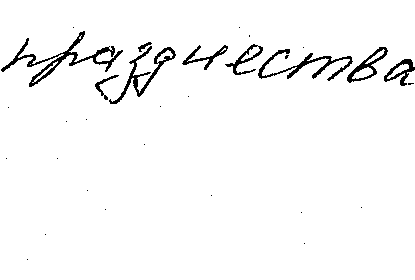 празднества